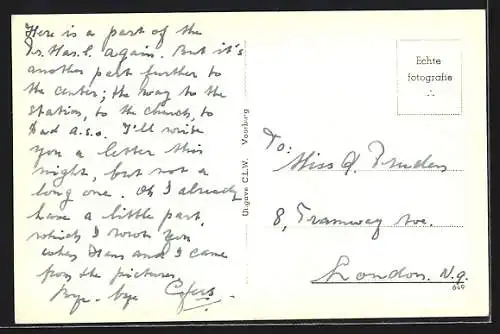 Here is a part of the
Is. Has. l. again. But it's
another part further to
the center; the way to the
station, to the church, to
Bud a.s.o. I'll write
you a letter this
night, but not a
long one. Oh I already
have a little part,
which I wrote you
when Hans and I came
from the pictures.
Bye-bye
Uitgave C.L.W. Voorburg
Echte
fotografie
To:
Miss J. Pruden
8, Tramway Ave.
London. N.9.
649